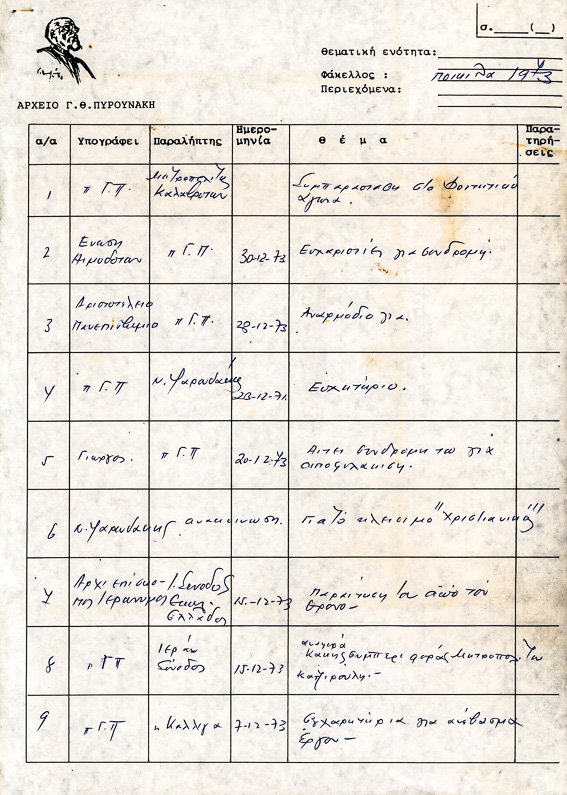 σ.____(__)
Θεματική ενότητα:
Φάκελλος : ποικίλα 1973
Περιεχόμενα:
ΑΡΧΕΙΟ Γ.Θ.ΠΥΡΟΥΝΑΚΗ
α/α Υπογράφει Παραλήπτης Ημερομηνία Θέμα Παρατηρήσεις
1 π Γ.Π. Μητροπολίτης
Καλαβρύτων
Συμπαράσταση στο Φοιτητικό
αγώνα.
2 Ενωση
Αιμοδοτών
π Γ.Π. 30-12-73 Ευχαριστίες για συνδρομή.
3 Αριστοτέλειο
Πανεπιστήμιο
π Γ.Π. 28-12-73 Αναρμόδιο για.
4 π Γ.Π Ν. Ψαρουδάκης 23-12-71. Ευχητήριο.
5 Γιωργος. π Γ.Π 20-12-73 Αιτεί συνδρομή του για
αποφυλάκιση.
6 Ν. Ψαρουδάκης ανακοίνωση. Για το κλείσιμο "Χριστιανικής"
7 Αρχιεπίσκο-
πος Ιερώνυμος
Ι. Σύνοδος
Εκκλ.
Ελλάδος
15-12-73 Παραίτηση από τον
θρόνο-
8 π ΓΠ Ιεράν
Σύνοδος
15-12-73 αναφορά
Κακής συμπεριφοράς Μητροπολίτου
9 π Γ.Π κ Καλλιγα 7-12-73 Συχαρητήρια για ανέβασμα
έργου-